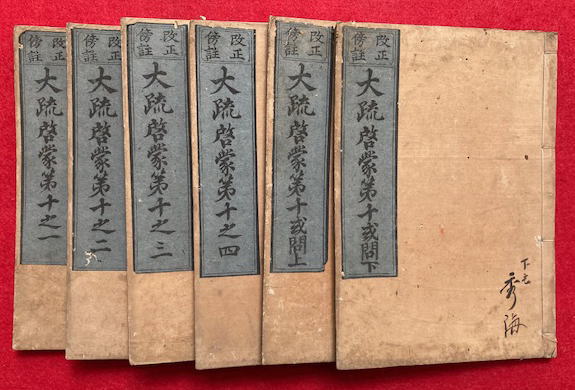 改正
傍註
大疏啓蒙第十之一
改正
傍註
大疏啓蒙第十之二
改正
傍註
大疏啓蒙第十之三
改正
傍註
大疏啓蒙第十之四
改正
傍註
大疏啓蒙第十或問上
改正
傍註
大疏啓蒙第十或問下
秀海